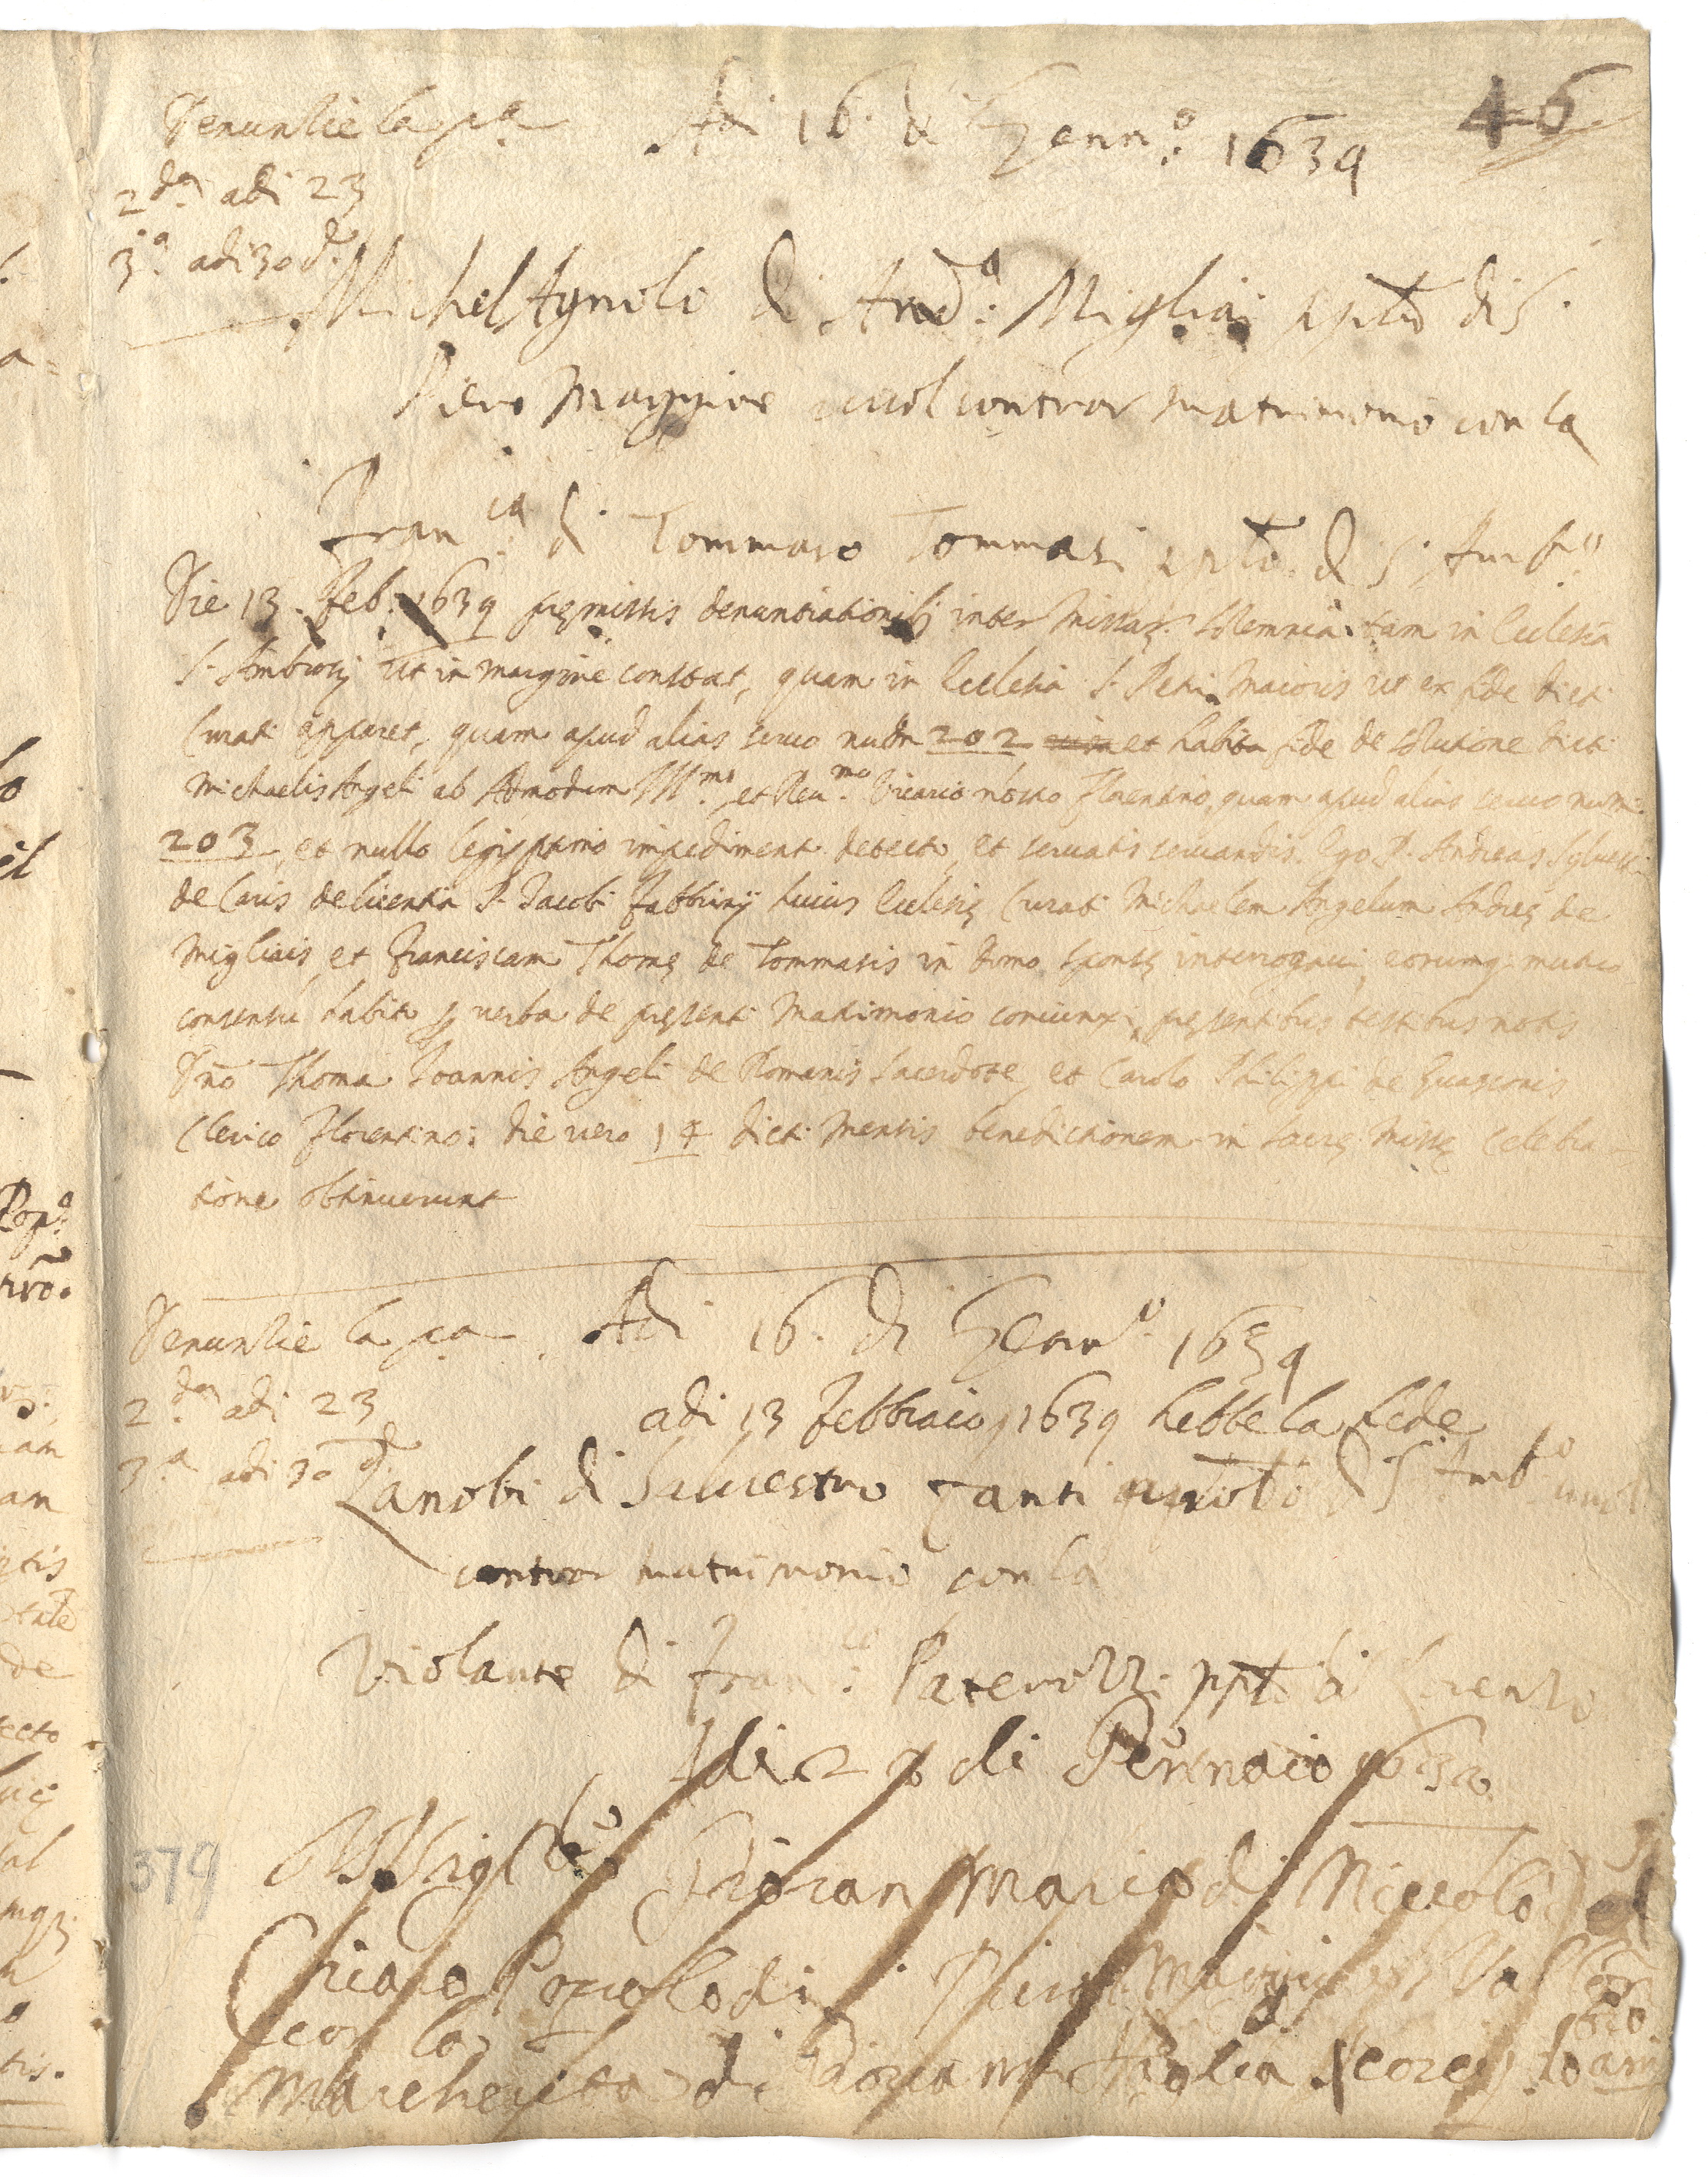 46
Denuntie la pa Adi 16. di Genn.o 1639
2.da adi 23
3.a adi 30 d.
MichelAgnolo di And.a Migliai ppto di S.
Piero Maggiore vuol contrar matrimonio con la
Fran.ca di Tommaso Tommasi ppto. di S. Amb.o
Die 13. Feb. 1639 premissis denuntiationibus inter Missar. solemnia tam in Ecclesia
S. Ambrosij ut in margine constat, quam in Ecclesia S. Petri Maioris ut ex fide dicti
Curati apparet, quam apud alias servo nu 202 et habita fide de solutione dicti
Michaelis Angeli ab Admodum Ill.mo et Reu.mo Vicario nostro Florentino, quam apud alias servo num.
203, et nullo legiptimo impedimento detecto, et servatis servandis. Ego P. Andreas Sylvestri
de Caris de licentia P. Jacobi Fabbrinij huius Ecclesię Curati Michaelem Angelum Andreę de
Migliais, et Franciscam Thomę de Tommasis in domo sponsę interrogavi, eorumq. mutuo
consensu habito p verba de pręsenti Matrimonio coniunxi, pręsentibus testibus notis
Dno Thoma Joannis Angeli de Romanis Sacerdote, et Carolo Philippi de Guasconis
Clerico Florentino: die vero 14 dicti Mensis benedictionem in sacrę Missę celebra-
tione obtinuerunt
Denuntie la pa Adi 16. di Genn.o 1639
2.da adi 23
adi 13 Febbraio 1639 hebbe la fede
3.a adi 30 d.
Zanobi di Salvestro Santi ppolo di S. Amb.o vuol
contrar matrimonio con la
Violante di Fran.co Paterozzi ppto di S. Lorenzo
Adi 29 di Gennaio 1639
Giovan Maria di Niccolò del
Chiaro Popolo di S. Piero Maggiore
con la
Margherita di Giovan
379